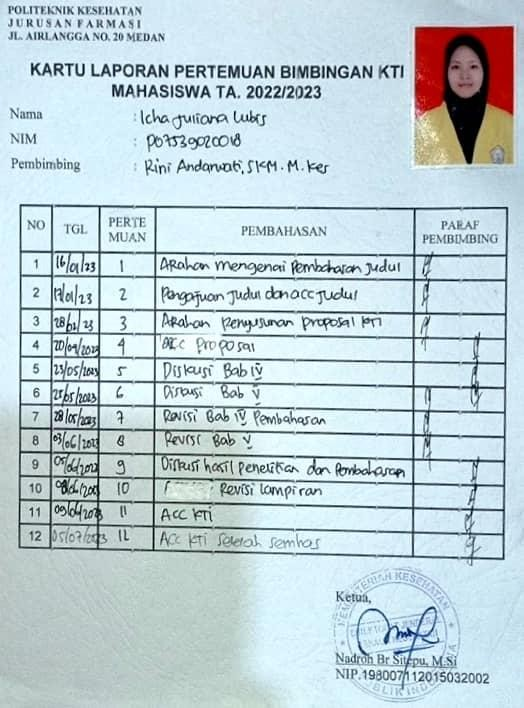 POLITEKNIK KESEHATAN
JURUSAN FARMASI
JL. AIRLANGGA NO. 20 MEDAN
KARTU LAPORAN PERTEMUAN BIMBINGAN KTI
MAHASISWA TA. 2022/2023
Nama : Icha Juliana Lubis
NIM : P07539020018
Pembimbing : Rini Andarwati, SKM. M. Kes
NO TGL PERTEMUAN PEMBAHASAN PARAF PEMBIMBING
1 16/01/23 1 Arahan mengenai Pembahasan Judul
2 17/01/23 2 Pengajuan Judul dan acc Judul
3 28/02/23 3 Arahan Penyusunan Proposal KTI
4 20/04/2023 4 ACC Proposal
5 23/05/2023 5 Diskusi Bab IV
6 25/05/2023 6 Diskusi Bab V
7 28/05/2023 7 Revisi Bab IV Pembahasan
8 03/06/2023 8 Revisi Bab V
9 05/06/2023 9 Diskusi hasil penelitian dan Pembahasan
10 08/06/2023 10 Revisi lampiran
11 09/06/2023 11 ACC KTI
12 05/07/2023 12 ACC KTI Setelah Semhas
Ketua,
KEMENTERIAN KESEHATAN
Nadroh Br Sitepu, M.Si
NIP.198007112015032002